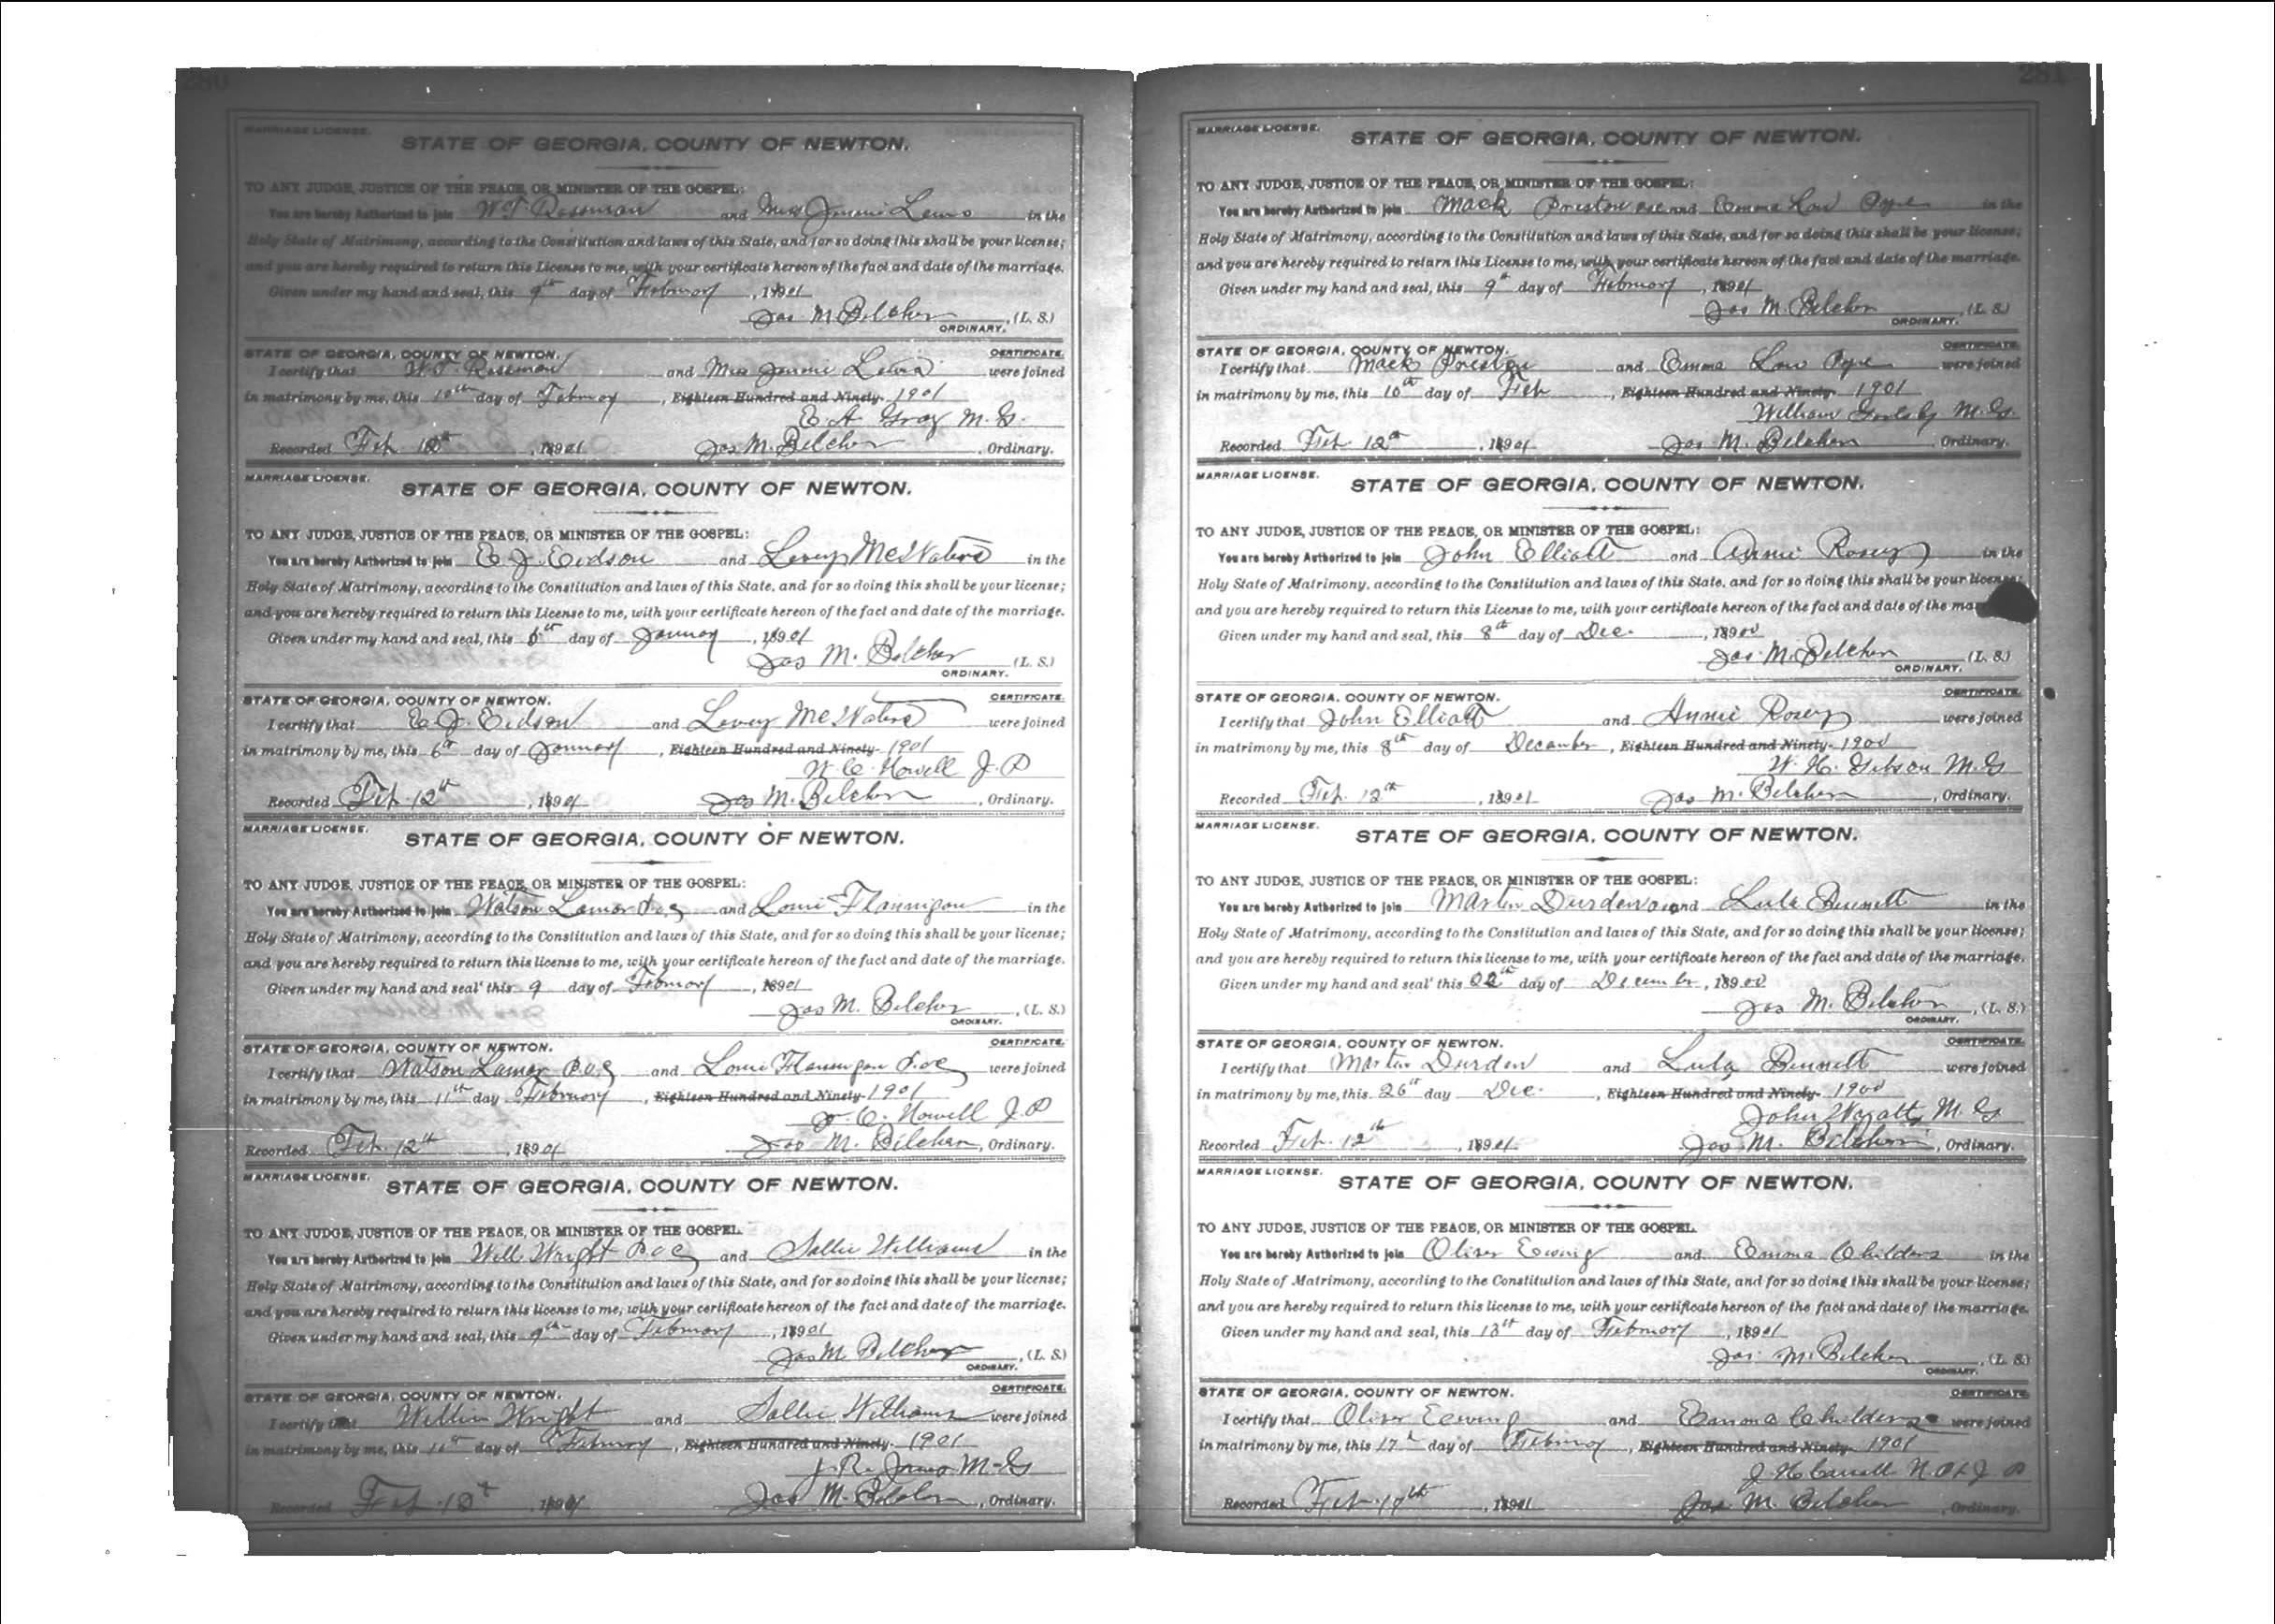 280
MARRIAGE LICENSE.
STATE OF GEORGIA, COUNTY OF NEWTON.
TO ANY JUDGE, JUSTICE OF THE PEACE, OR MINISTER OF THE GOSPEL:
You are hereby Authorized to join W. T. Rossman and Miss Jennie Lewis in the
Holy State of Matrimony, according to the Constitution and laws of this State, and for so doing this shall be your license;
and you are hereby required to return this License to me, with your certificate hereon of the fact and date of the marriage.
Given under my hand and seal, this 9th day of February, 1901
Jas M Belcher, (L. S.)
ORDINARY.
STATE OF GEORGIA, COUNTY OF NEWTON. CERTIFICATE.
I certify that W. T. Rossman and Miss Jennie Lewis were joined
in matrimony by me, this 10th day of February, Eighteen Hundred and Ninety- 1901
E. A. Gray M. G.
Recorded Feb 12th, 1901 Jas M. Belcher, Ordinary.
MARRIAGE LICENSE.
STATE OF GEORGIA, COUNTY OF NEWTON.
TO ANY JUDGE, JUSTICE OF THE PEACE, OR MINISTER OF THE GOSPEL:
You are hereby Authorized to join E. J. Eidson and Lovey McWaters in the
Holy State of Matrimony, according to the Constitution and laws of this State, and for so doing this shall be your license;
and you are hereby required to return this License to me, with your certificate hereon of the fact and date of the marriage.
Given under my hand and seal, this 5th day of January, 1901
Jas M. Belcher (L. S.)
ORDINARY.
STATE OF GEORGIA, COUNTY OF NEWTON. CERTIFICATE.
I certify that E. J. Eidson and Lovey McWaters were joined
in matrimony by me, this 6th day of January, Eighteen Hundred and Ninety- 1901
W. C. Howell J. P
Recorded Feb 12th, 1901 Jas M. Belcher, Ordinary.
MARRIAGE LICENSE.
STATE OF GEORGIA, COUNTY OF NEWTON.
TO ANY JUDGE, JUSTICE OF THE PEACE, OR MINISTER OF THE GOSPEL:
You are hereby Authorized to join Watson Lamar and Louie Flannigan in the
Holy State of Matrimony, according to the Constitution and laws of this State, and for so doing this shall be your license;
and you are hereby required to return this license to me, with your certificate hereon of the fact and date of the marriage.
Given under my hand and seal' this 9 day of February, 1901
Jas M. Belcher, (L. S.)
ORDINARY.
STATE OF GEORGIA, COUNTY OF NEWTON. CERTIFICATE.
I certify that Watson Lamar and Louie Flannigan were joined
in matrimony by me, this 11th day February, Eighteen Hundred and Ninety- 1901
C. Howell J. P
Recorded Feb. 12th, 1901 Jas M. Belcher, Ordinary.
MARRIAGE LICENSE.
STATE OF GEORGIA, COUNTY OF NEWTON.
TO ANY JUDGE, JUSTICE OF THE PEACE, OR MINISTER OF THE GOSPEL.
You are hereby Authorized to join Will Wright and Sallie Williams in the
Holy State of Matrimony, according to the Constitution and laws of this State, and for so doing this shall be your license;
and you are hereby required to return this license to me, with your certificate hereon of the fact and date of the marriage.
Given under my hand and seal, this 9th day of February, 1901
Jas M Belcher, (L. S.)
ORDINARY.
STATE OF GEORGIA, COUNTY OF NEWTON. CERTIFICATE.
I certify that Willie Wright and Sallie Williams were joined
in matrimony by me, this day of February, Eighteen Hundred and Ninety- 1901
J. R. M-G
Recorded Feb 12th, 1901 Jas M. Belcher, Ordinary.
281
MARRIAGE LICENSE.
STATE OF GEORGIA, COUNTY OF NEWTON.
TO ANY JUDGE, JUSTICE OF THE PEACE, OR MINISTER OF THE GOSPEL:
You are hereby Authorized to join Mack Preston and Emma Lou Pope in the
Holy State of Matrimony, according to the Constitution and laws of this State, and for so doing this shall be your license;
and you are hereby required to return this License to me, with your certificate hereon of the fact and date of the marriage.
Given under my hand and seal, this 9th day of February, 1901
Jas M. Belcher (L. S.)
ORDINARY.
STATE OF GEORGIA, COUNTY OF NEWTON. CERTIFICATE.
I certify that Mack Preston and Emma Lou Pope were joined
in matrimony by me, this 10th day of Feb, Eighteen Hundred and Ninety- 1901
William M. G.
Recorded Feb 12th, 1901 Jas M. Belcher, Ordinary.
MARRIAGE LICENSE.
STATE OF GEORGIA, COUNTY OF NEWTON.
TO ANY JUDGE, JUSTICE OF THE PEACE, OR MINISTER OF THE GOSPEL:
You are hereby Authorized to join John Elliott and Annie Rosey in the
Holy State of Matrimony, according to the Constitution and laws of this State, and for so doing this shall be your license;
and you are hereby required to return this License to me, with your certificate hereon of the fact and date of the mar
Given under my hand and seal, this 8th day of Dec., 1900
Jas. M. Belcher (L. S.)
ORDINARY.
STATE OF GEORGIA, COUNTY OF NEWTON. CERTIFICATE.
I certify that John Elliott and Annie Rosey were joined
in matrimony by me, this 8th day of December, Eighteen Hundred and Ninety- 1900
W. H. Gibson M. G
Recorded Feb. 12th, 1901 Jas M. Belcher, Ordinary.
MARRIAGE LICENSE.
STATE OF GEORGIA, COUNTY OF NEWTON.
TO ANY JUDGE, JUSTICE OF THE PEACE, OR MINISTER OF THE GOSPEL:
You are hereby Authorized to join Martin Durden and Lula Bennett in the
Holy State of Matrimony, according to the Constitution and laws of this State, and for so doing this shall be your license;
and you are hereby required to return this license to me, with your certificate hereon of the fact and date of the marriage.
Given under my hand and seal' this 22th day of December, 1900
Jas M. Belcher, (L. S.)
ORDINARY.
STATE OF GEORGIA, COUNTY OF NEWTON. CERTIFICATE.
I certify that Martin Durden and Lula Bennett were joined
in matrimony by me, this 26th day Dec., Eighteen Hundred and Ninety- 1900
John Wyatt, M. G
Recorded Feb. 12th, 1901 Jas M. Belcher, Ordinary.
MARRIAGE LICENSE.
STATE OF GEORGIA, COUNTY OF NEWTON.
TO ANY JUDGE, JUSTICE OF THE PEACE, OR MINISTER OF THE GOSPEL.
You are hereby Authorized to join Oliver Ewing and Emma Childers in the
Holy State of Matrimony, according to the Constitution and laws of this State, and for so doing this shall be your license;
and you are hereby required to return this license to me, with your certificate hereon of the fact and date of the marriage.
Given under my hand and seal, this 13th day of February, 1901
Jas. M. Belcher, (L. S.)
ORDINARY.
STATE OF GEORGIA, COUNTY OF NEWTON. CERTIFICATE.
I certify that Oliver Ewing and Emma Childers were joined
in matrimony by me, this 17th day of February, Eighteen Hundred and Ninety- 1901
J H Carroll N. P & J. P
Recorded Feb. 19th, 1901 Jas M. Belcher, Ordinary.